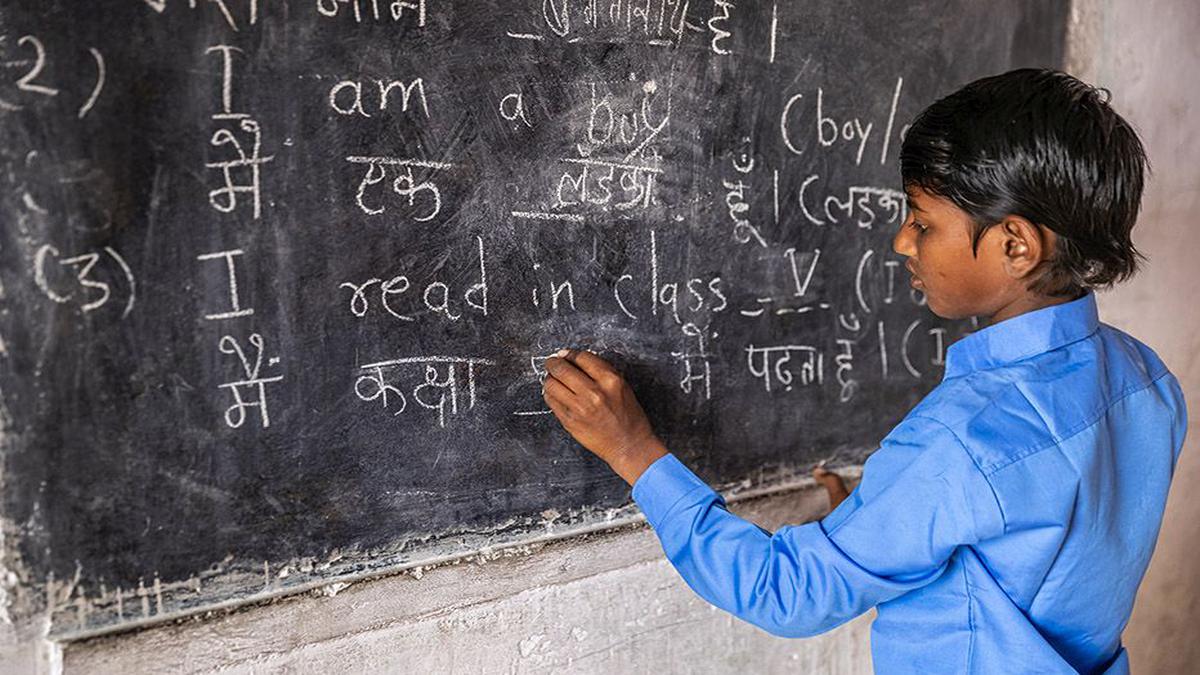 नाम है ।
2) I am a boy (boy/
मैं एक लड़का हूँ । (लड़का
(3) I read in class V (I
मैं कक्षा में पढ़ता हूँ । (I